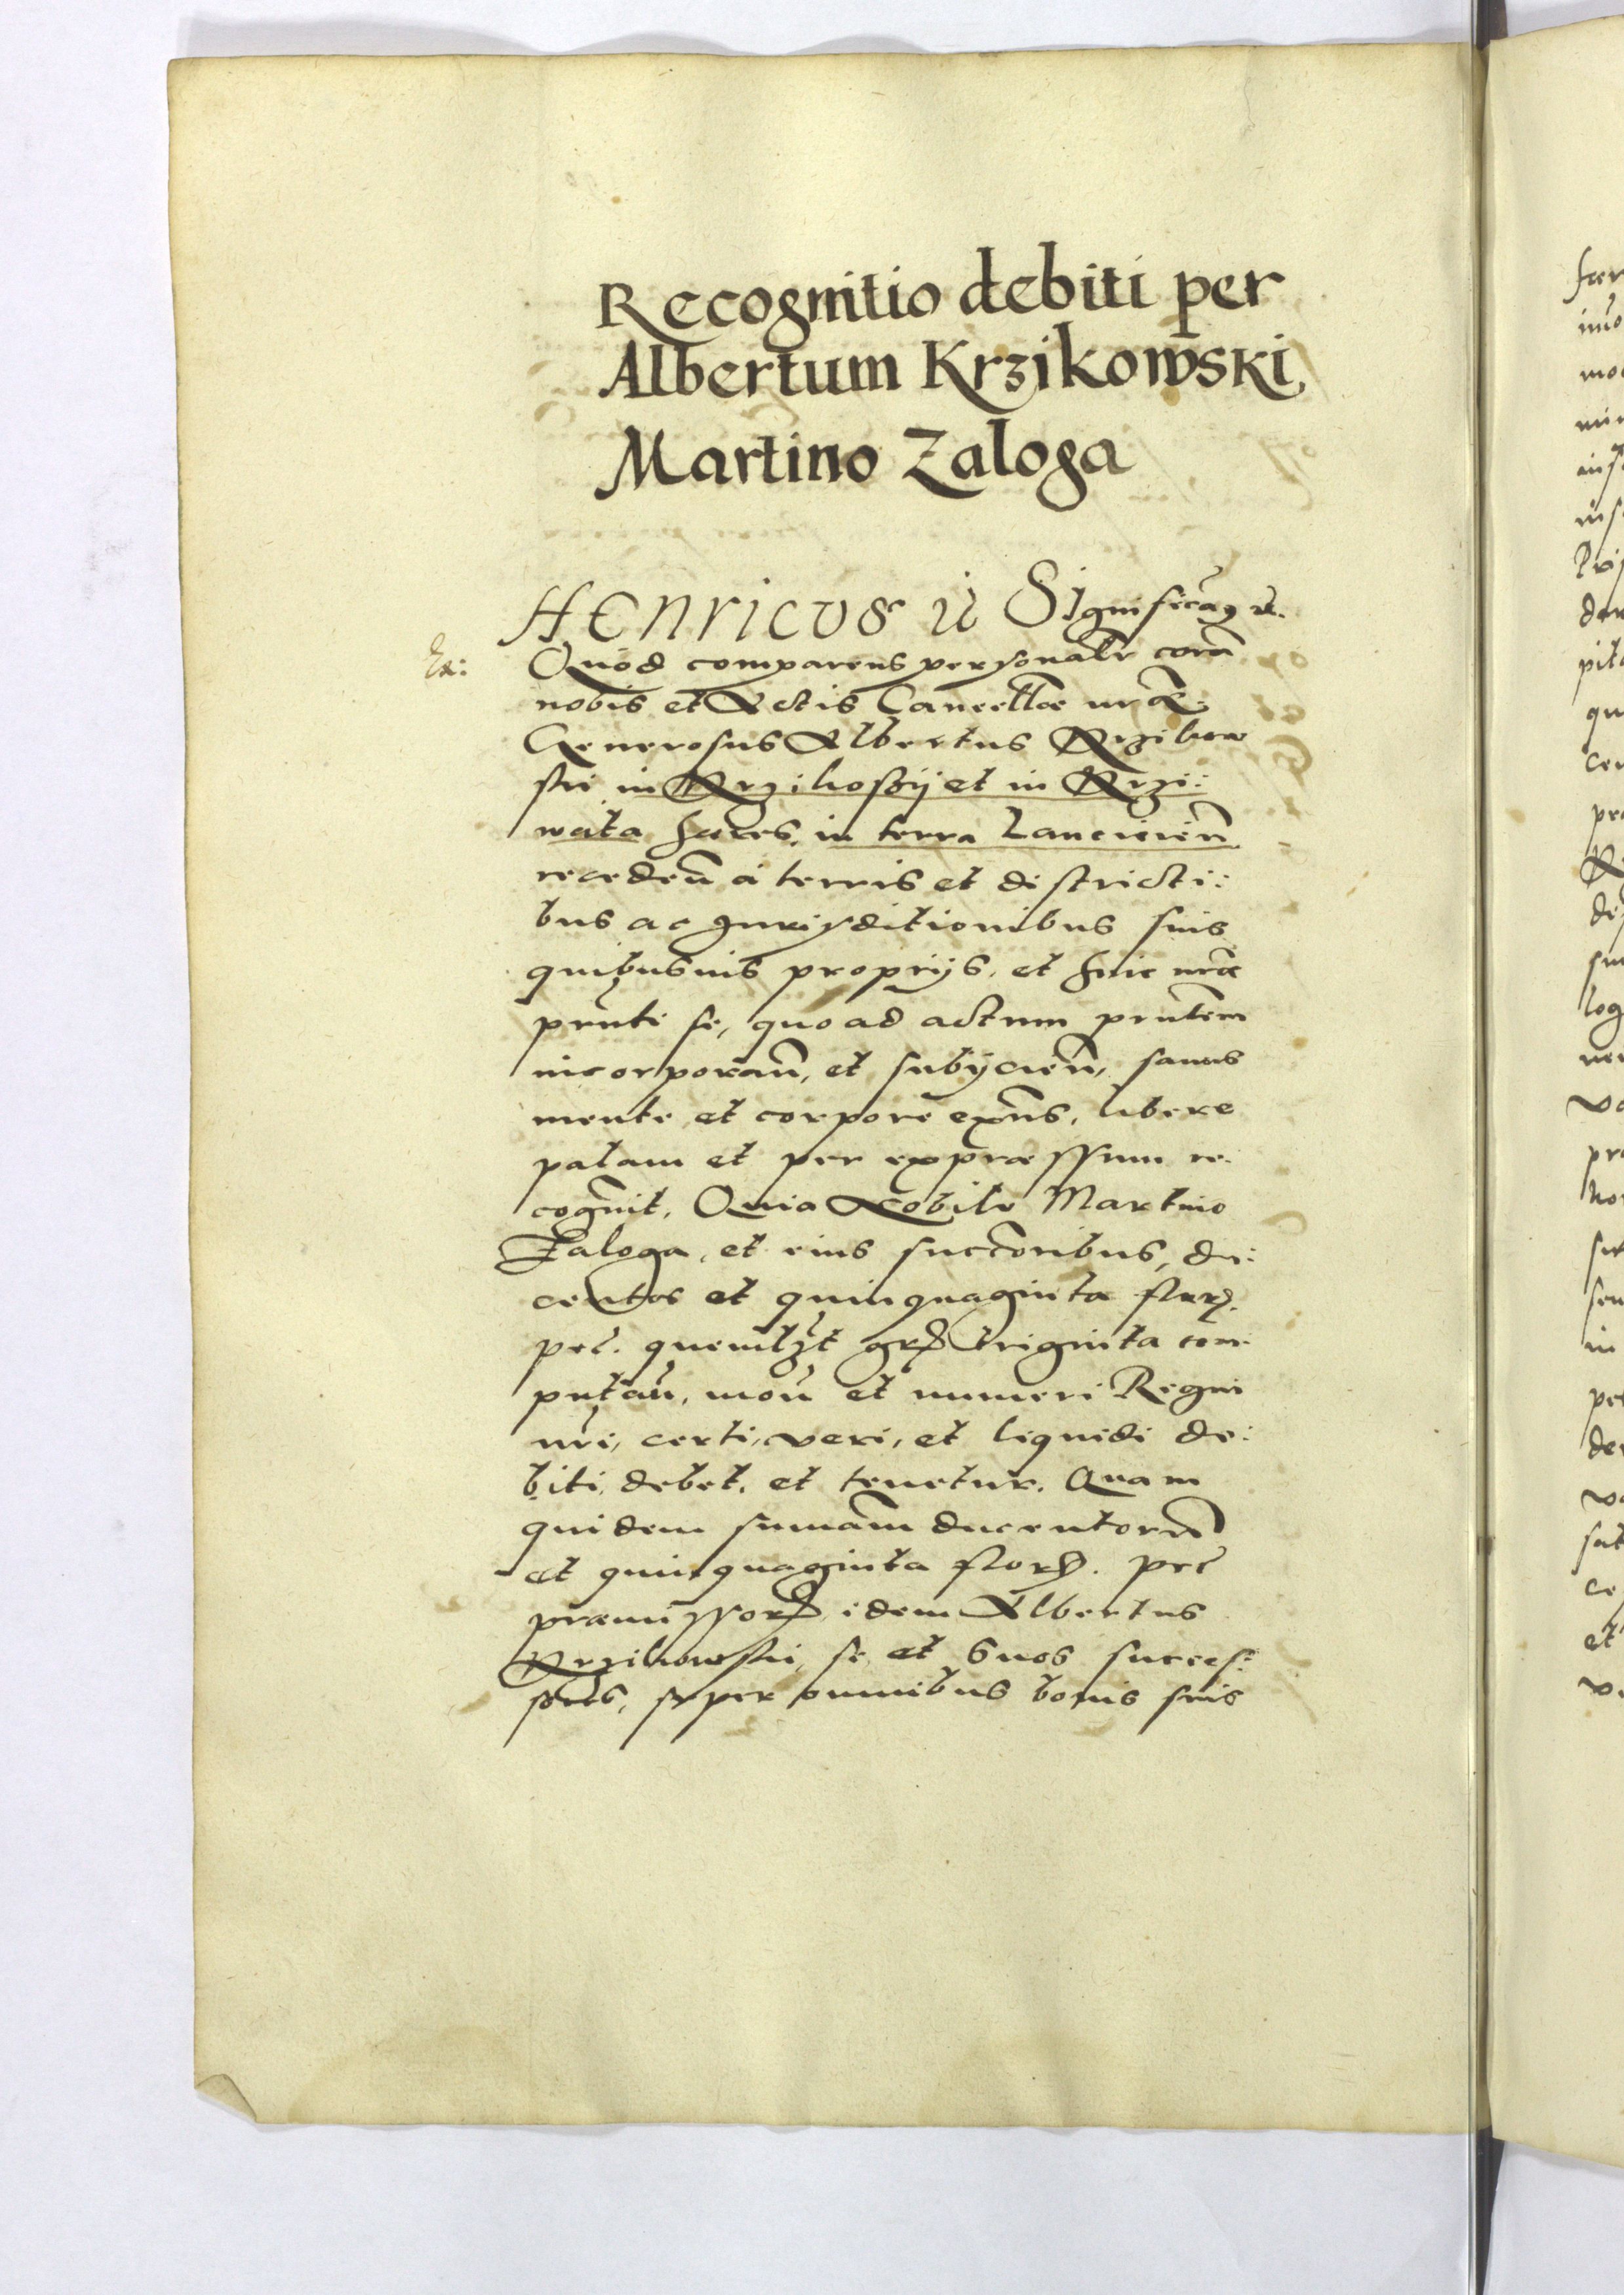 Recognitio debiti per
Albertum Krzikowski,
Martino Zaloga
HENRICVS etc Significam9 etc.
Ex: Quod comparens personalr corã
nobis et Actis Cancellae nrae:
Generosus Albertus Krzikow
ski in Krzikoszy et in Krzi:
wata haeres, in terra Lancicien̄
recedeñ a terris et districti:
bus ac Jurisditionibus suis
quibusuis proprijs, et huic nrae
prñti se, quo ad actum prñtem
incorporañ, et subijcieñ, sanus
mente et corpore exñs, libere
palam et per expraessum re:
cognit. Quia Nobili Martino
Zaloga, et eius succoribus, du:
centos et quinquaginta flor.
pec. quemlzt gr triginta com:
putañ, moñ et numeri Regni
nri, certi, veri, et liquidi de:
biti, debet, et tenetur. Quam
quidem sumam ducentorũ
et quinquaginta flor. pec
praemissor, idem Albertus
Krzikowski, se et suos succes:
sores, super omnibus bonis suis